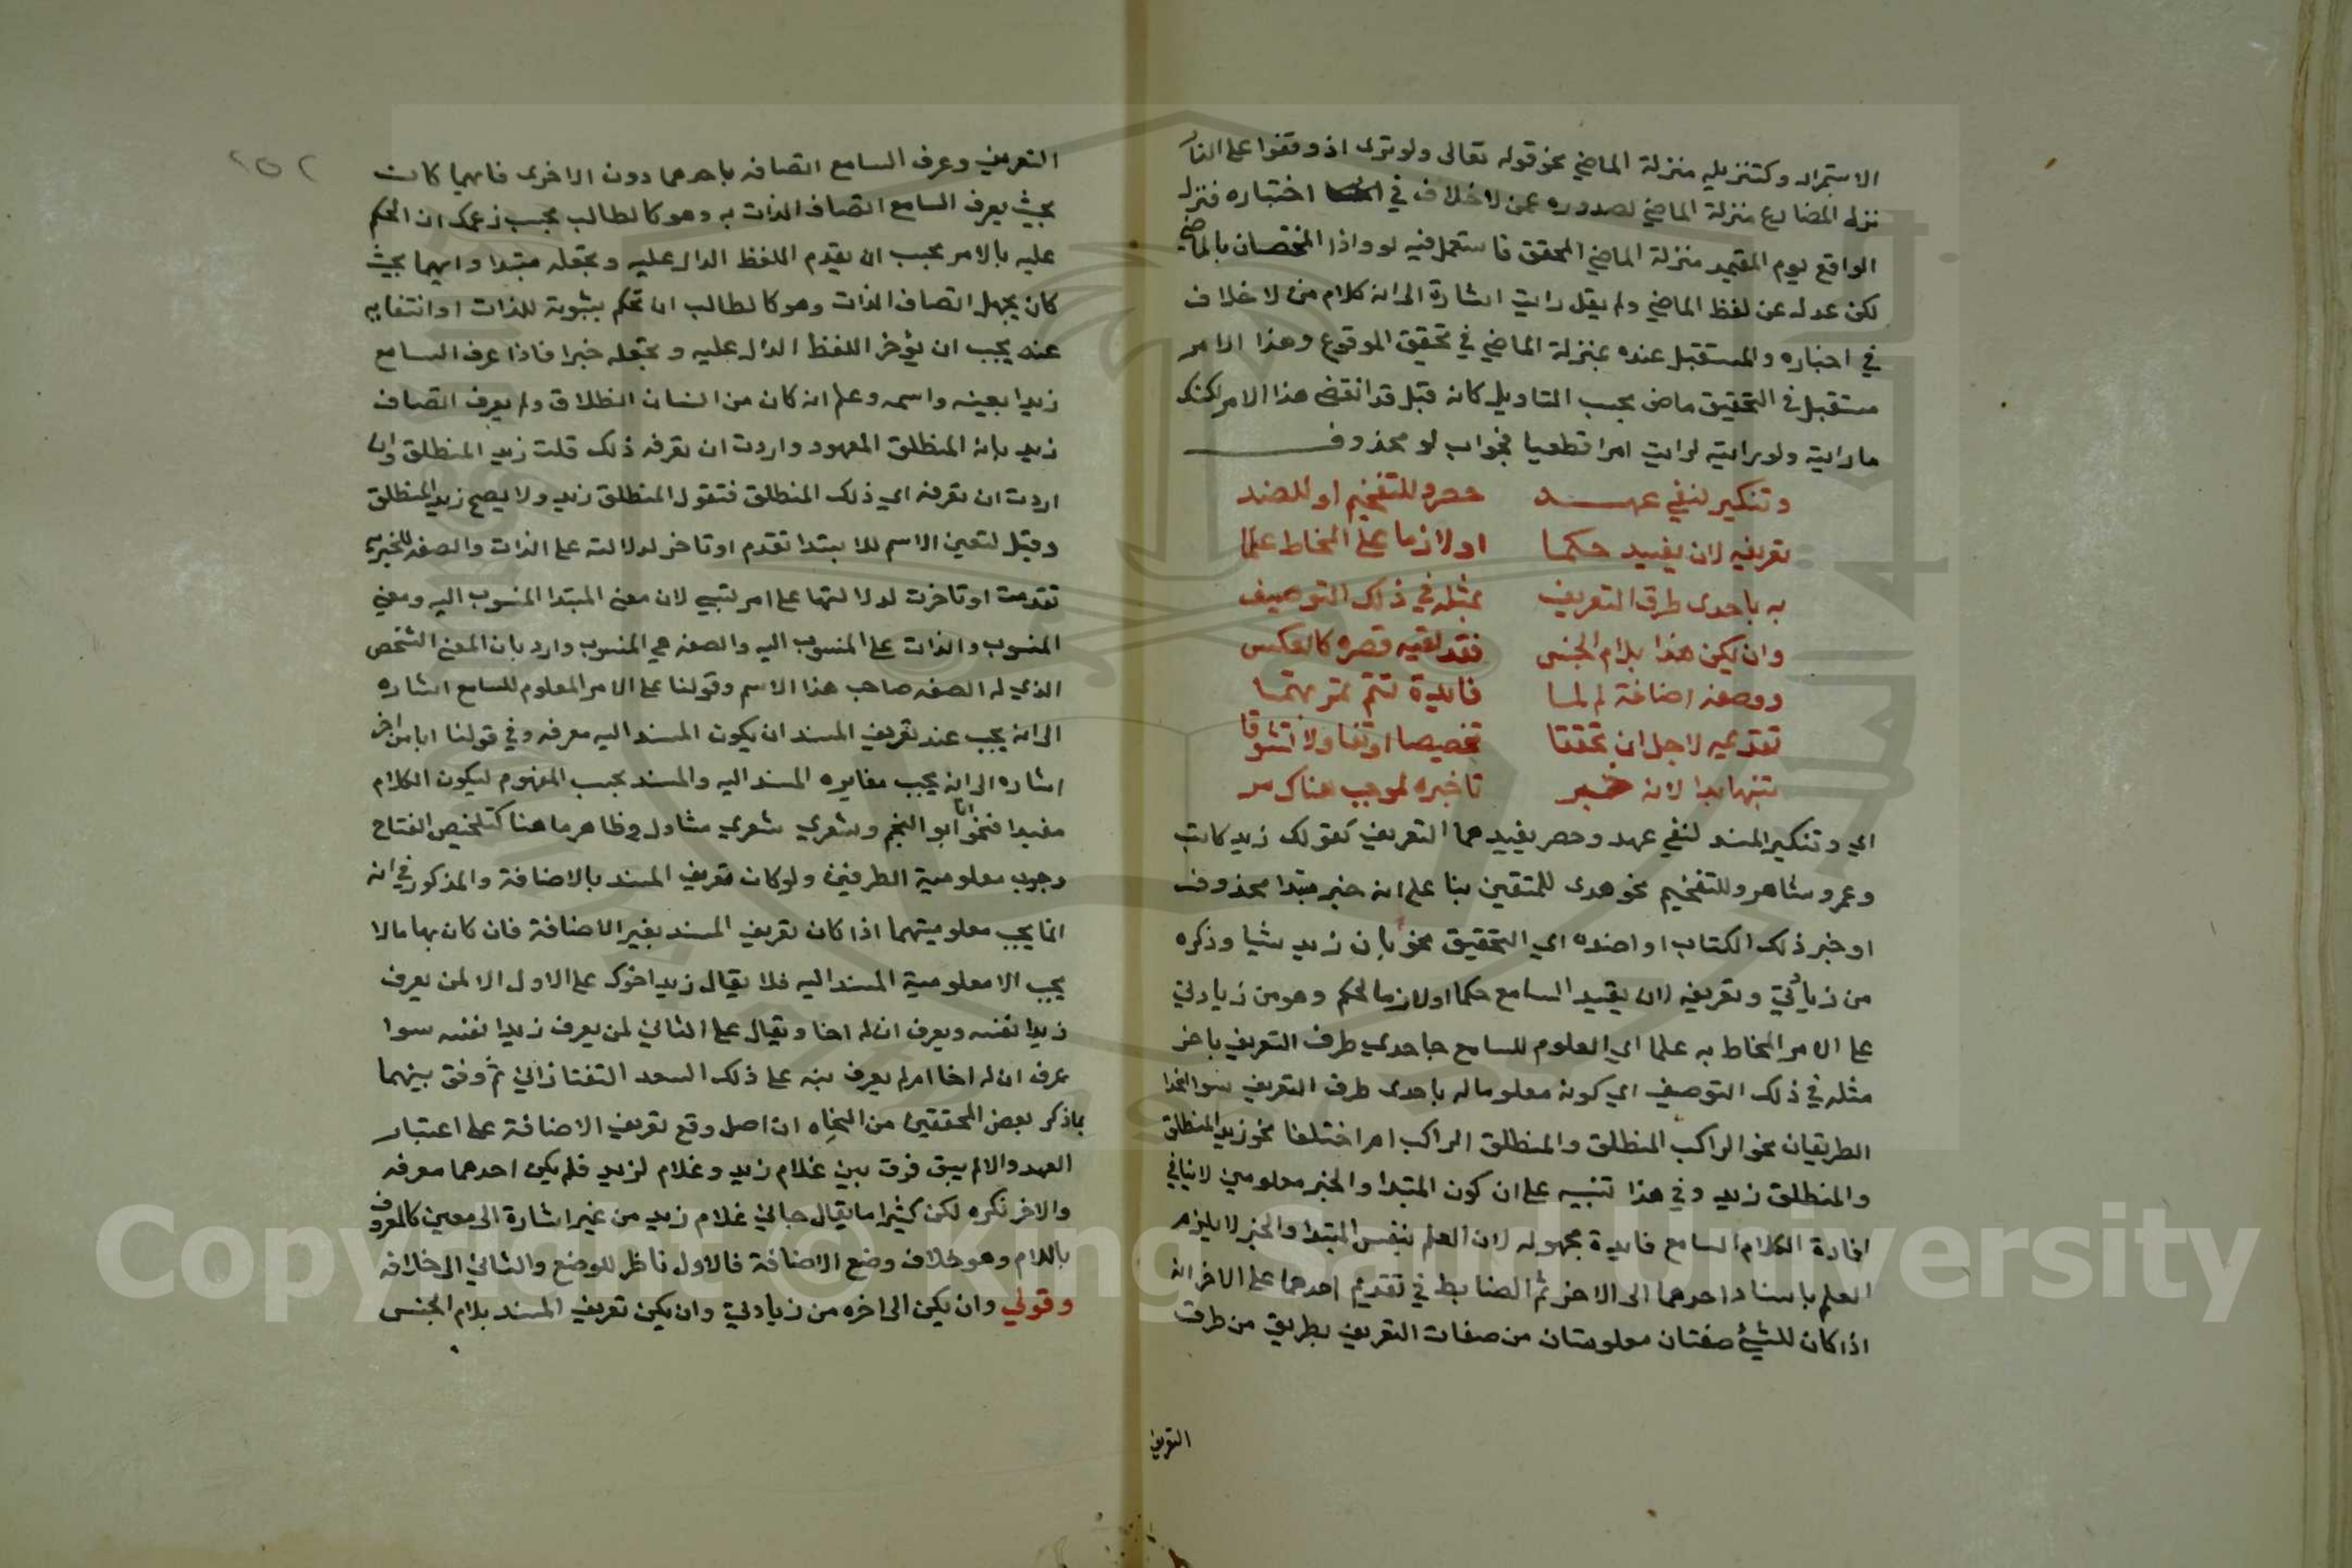 الاستمرار وكتنزيله منزلة الماضي نحو قوله تعالى ولو ترى اذ وقفوا على النار
نزله المضارع منزلة الماضي لصدوره عمن لا خلاف في اختباره فنزله
الواقع يوم القيمة منزلة الماضي المحقق فاستعمل فيه لو واذا المختصان بالماضي
لكن عدل عن لفظ الماضي ولم يقل رايت اشارة الى انه كلام من لا خلاف
في اخباره والمستقبل عنده بمنزلة الماضي في تحقيق الوقوع وهذا الامر
مستقبل في التحقيق ماض بحسب التاويل كانه قيل قد انقضى هذا الامر لكنك
ما رايته ولو رايته لرايت امرا قطعيا فجواب لو محذوف
وتنكير لنفي عهد حصر وللتفخيم او للضد
تعريفه لان يفيد حكما او لازما على المخاط علما
به باحدى طرق التعريف بمثله في ذلك التوصيف
وان يكن هذا بلام الجنس فقد لقيه قصره كالعكس
ووصفه اضافة لم لما فائدة تتم
تقديمه لاجل ان تحققا تخصيصا او تفاولا تشوقا
تنبها بدا لانه خبر تاخيره لموجب هناك مر
اي وتنكير المسند لنفي عهد وحصر يفيدهما التعريف كقولك زيد كاتب
وعمرو شاعر وللتفخيم نحو هدى للمتقين بنا على انه خبر مبتدا محذوف
او خبر ذلك الكتاب او اضده اي التحقيق نحو بان زيد شيا وذكره
من زيادتي وتعريفه لان يفيد السامع حكما او لازما لحكم وهو من زيادتي
على الامر المخاط به علما اي المعلوم للسامع حا حدي طرف التعريف باخر
مثله في ذلك التوصيف اي كونه معلوما له باحدى طرف التعريف سوا اتحدا
الطريقان نحو الراكب المنطلق والمنطلق الراكب ام اختلفا نحو زيد المنطلق
والمنطلق زيد وفي هذا تنبيه على ان كون المبتدا والخبر معلومين لا ينافي
افادة الكلام السامع فايدة مجهوله لان العلم بنفس المبتدا والخبر لا يلزم
العلم باسناد احدهما الى الاخر ثم الضابط في تقديم احدهما على الاخر انه
اذا كان للشيء صفتان معلومتان من صفات التعريف بطريق من طرف
التعريف
٢٥٢
التعريف وعرف السامع اتصافه باحدهما دون الاخرى فايهما كانت
بحيث يعرف السامع اتصاف الذات به وهو كالطالب بحسب زعمك ان الحكم
عليه بالامر يجب ان يقدم اللفظ الدال عليه وتجعله مبتدا وايهما بحيث
كان يجهل اتصاف الذات وهو كالطالب ان تحكم بثبوته للذات او انتفايه
عنه يجب ان يؤخر اللفظ الدال عليه وتجعله خبرا فاذا عرف السامع
زيدا بعينه واسمه وعلم انه كان من انسان انطلاق ولم يعرف اتصاف
زيد بانه المنطلق المعهود واردت ان تعرفه ذلك قلت زيد المنطلق وان
اردت ان تعرفه اي ذلك المنطلق فتقول المنطلق زيد ولا يصح زيد المنطلق
وقيل لتعين الاسم للابتدا تقدم او تاخر لدلالته على الذات والصفه للخبريه
تقدمت او تاخرت لدلالتها على امر نسبي لان معنى المبتدا المنسوب اليه ومعني
المنسوب والذات على المنسوب اليه والصفه هي المنسوب وارد بان المعنى الشخص
الذي له الصفه صاحب هذا الاسم وقولنا على الامر المعلوم للسامع اشاره
الى انه يجب عند تعريف المسند ان يكون المسند اليه معرفه وفي قولنا اباس اخر
اشاره الى انه يجب مغايره المسند اليه والمسند بحسب المفهوم ليكون الكلام
مفيدا فنحو انا ابو النجم وشعري شعري متاول وظاهر ما هنا كتلخيص المفتاح
وجوب معلومية الطرفين ولو كان تعريف المسند بالاضافة والمذكور في انه
انما يجب معلوميتهما اذا كان تعريف المسند بغير الاضافة فان كان بها مالا
يجب الا معلومية المسند اليه فلا يقال زيد اخوك على الاول الا لمن يعرف
زيدا نفسه ويعرف ان له اخا ويقال على الثاني لمن يعرف زيدا نفسه سوا
عرف ان له اخا ام لم يعرف نبه على ذلك السعد التفتازاني ثم وفق بينهما
بما ذكر بعض المحققين من النحاه ان اصل وقع تعريف الاضافة على اعتبار
العهد والا لم يبق فرق بين غلام زيد وغلام لزيد فلم يكن احدهما معرفه
والاخر نكره لكن كثيرا ما يقال جاني غلام زيد من غير اشارة الى معين كالمعروف
باللام وهو خلاف وضع الاضافة فالاول ناظر للوضع والثاني الى خلافه
وقولي وان يكن الى اخره من زيادتي وان يكن تعريف المسند بلام الجنس
Copyright © King Saud University